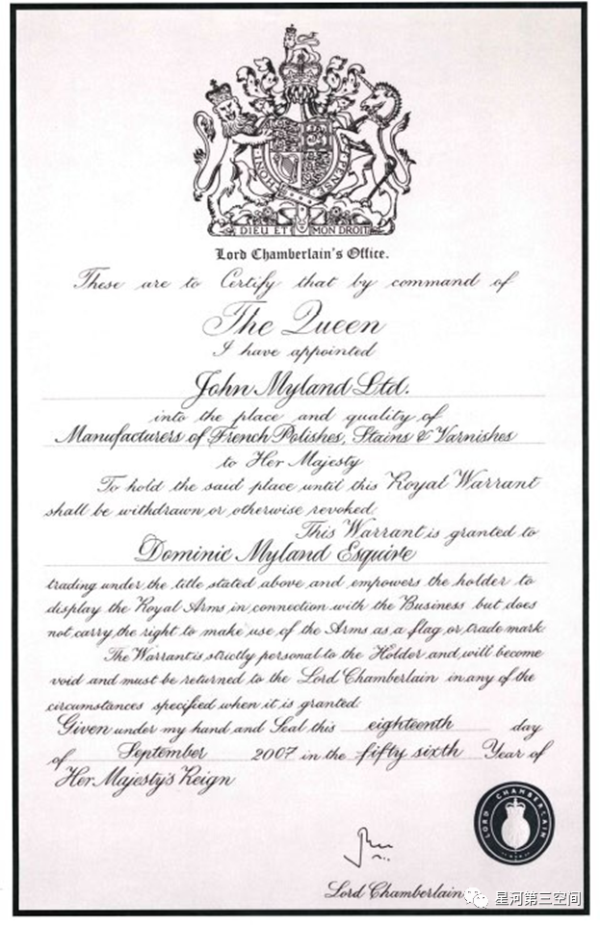 DIEU ET MON DROIT
Lord Chamberlain's Office.
These are to Certify that by command of
The Queen
I have appointed
John Myland Ltd.
into the place and quality of
Manufacturers of French Polishes, Stains & Varnishes
to Her Majesty
To hold the said place until this Royal Warrant
shall be withdrawn or otherwise revoked.
This Warrant is granted to
Dominic Myland Esquire
trading under the title stated above and empowers the holder to
display the Royal Arms in connection with the Business but does
not carry the right to make use of the Arms as a flag or trade mark.
The Warrant is strictly personal to the Holder and will become
void and must be returned to the Lord Chamberlain in any of the
circumstances specified when it is granted.
Given under my hand and Seal this eighteenth day
of September 2007 in the fifty sixth Year of
Her Majesty's Reign
LORD CHAMBERLAIN
Lord Chamberlain
星河第三空间